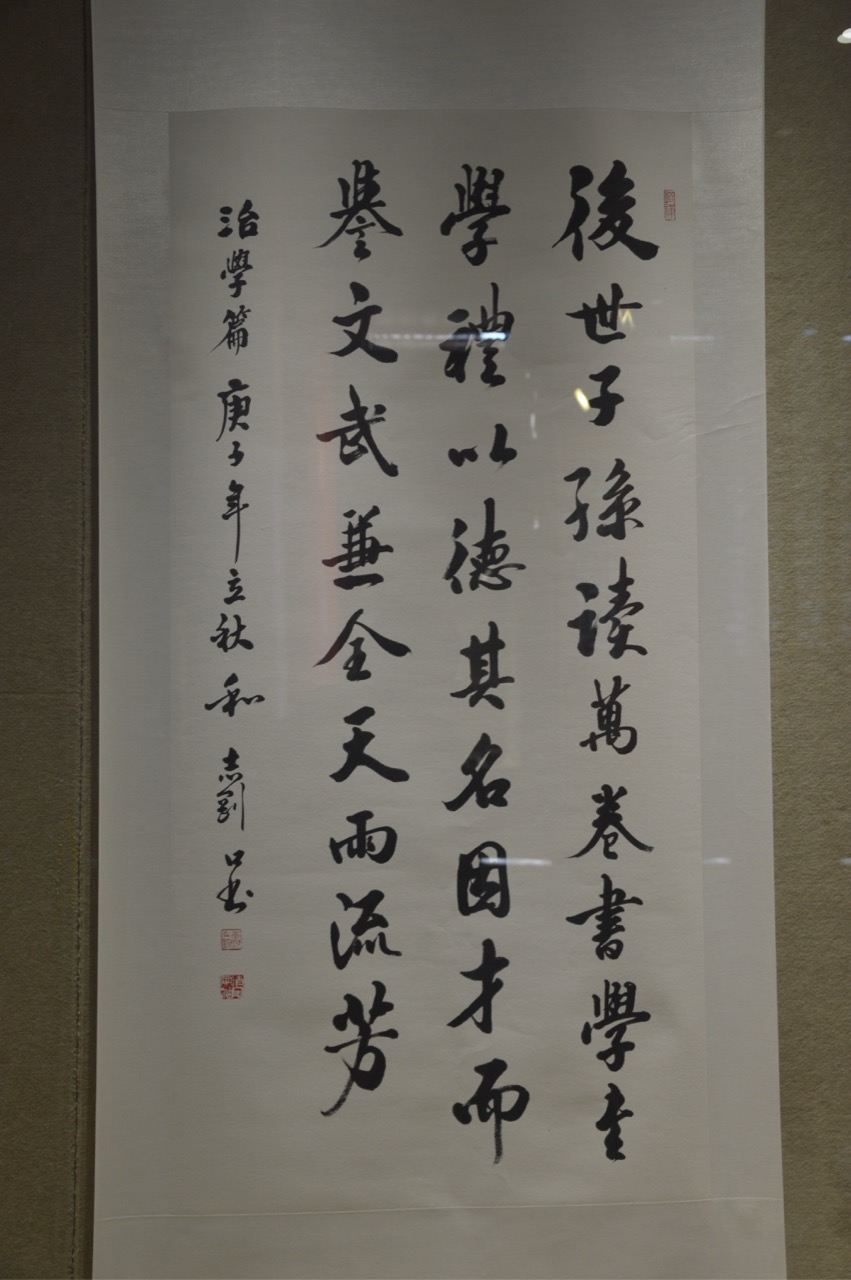 後世子孫读萬卷書學书
學禮以德其名因才而
譽文武兼全天雨流芳
治學篇 庚子年立秋 和志剛 口书